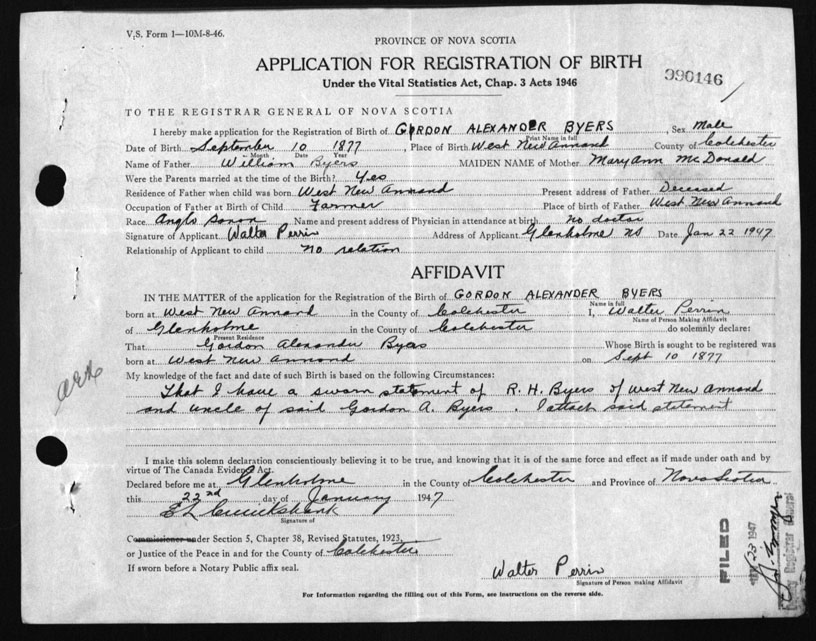 V.S. Form 1—10M-8-46.
PROVINCE OF NOVA SCOTIA
APPLICATION FOR REGISTRATION OF BIRTH
Under the Vital Statistics Act, Chap. 3 Acts 1946
990146
TO THE REGISTRAR GENERAL OF NOVA SCOTIA
I hereby make application for the Registration of Birth of GORDON ALEXANDER BYERS, Sex Male
Print Name in full
Date of Birth September 10 1877, Place of Birth West New Annand County of Colchester
Month Date Year
Name of Father William Byers MAIDEN NAME of Mother Mary Ann McDonald
Were the Parents married at the time of the Birth? Yes
Residence of Father when child was born West New Annand Present address of Father Deceased
Occupation of Father at Birth of Child Farmer Place of birth of Father West New Annand
Race Anglo saxon Name and present address of Physician in attendance at birth no doctor
Signature of Applicant Walter Perrin Address of Applicant Glenholme NS Date Jan 22 1947
Relationship of Applicant to child no relation
AFFIDAVIT
IN THE MATTER of the application for the Registration of the Birth of GORDON ALEXANDER BYERS
Name in full
born at West New Annand in the County of Colchester I, Walter Perrin
Name of Person Making Affidavit
of Glenholme in the County of Colchester do solemnly declare:
Present Residence
That Gordon Alexander Byers Whose Birth is sought to be registered was
born at West New Annand on Sept 10 1877
My knowledge of the fact and date of such Birth is based on the following Circumstances:
That I have a sworn statement of R. H. Byers of West New Annand
and uncle of said Gordon A. Byers. I attach said statement
I make this solemn declaration conscientiously believing it to be true, and knowing that it is of the same force and effect as if made under oath and by
virtue of The Canada Evidence Act.
Declared before me at Glenholme in the County of Colchester and Province of Nova Scotia
this 22nd day of January 1947
E L Cruickshank
Signature of
Commissioner under Section 5, Chapter 38, Revised Statutes, 1923,
or Justice of the Peace in and for the County of Colchester
If sworn before a Notary Public affix seal.
Walter Perrin
Signature of Person making Affidavit
For Information regarding the filling out of this Form, see instructions on the reverse side.
FILED
23 1947
Deputy Registrar General